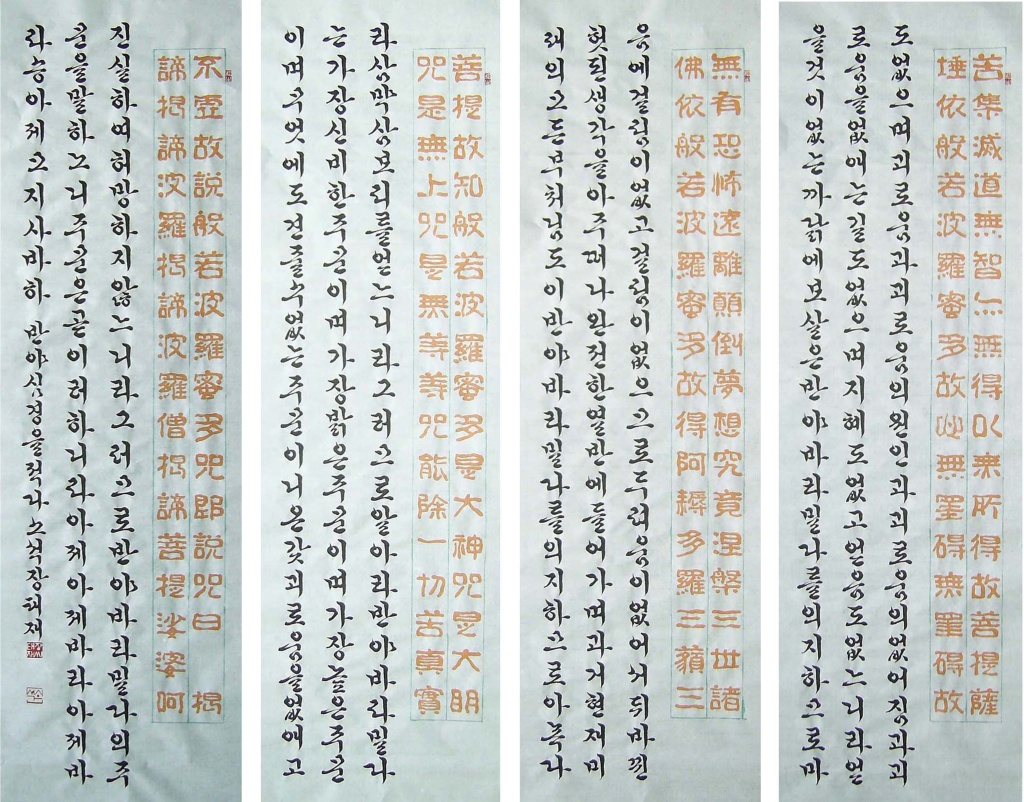 苦集滅道無智亦無得以無所得故菩提薩
埵依般若波羅蜜多故心無罣碍無罣碍故
도없으며괴로움과괴로움의원인과괴로움의없어짐과괴
로움을없애는길도없으며지혜도없고얻음도없느니라얻
을것이없는까닭에보살은반야바라밀다를의지하므로마
無有恐怖遠離顛倒夢想究竟涅槃三世諸
佛依般若波羅蜜多故得阿耨多羅三藐三
음에걸림이없고걸림이없으므로두려움이없어서뒤바뀐
헛된생각을아주떠나완전한열반에들어가며과거현재미
래의모든부처님도이반야바라밀다를의지하므로아뇩다
菩提故知般若波羅蜜多是大神咒是大明
咒是無上咒是無等等咒能除一切苦真實
라삼먁삼보리를얻느니라그러므로알아라반야바라밀다
는가장신비한주문이며가장밝은주문이며가장높은주문
이며무엇에도견줄수없는주문이니온갖괴로움을없애고
不虛故說般若波羅蜜多咒即說咒曰 揭
諦揭諦波羅揭諦波羅僧揭諦菩提娑婆呵
진실하여허망하지않느니라그러므로반야바라밀다의주
문을말하노니주문은곧이러하니라아제아제바라아제바
라승아제모지사바하 반야심경을적다